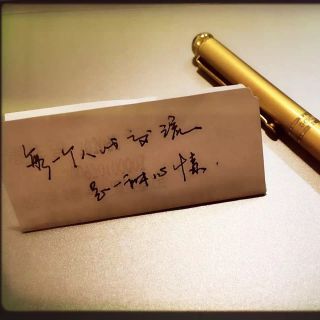 每一个人的交流
是一种心情.